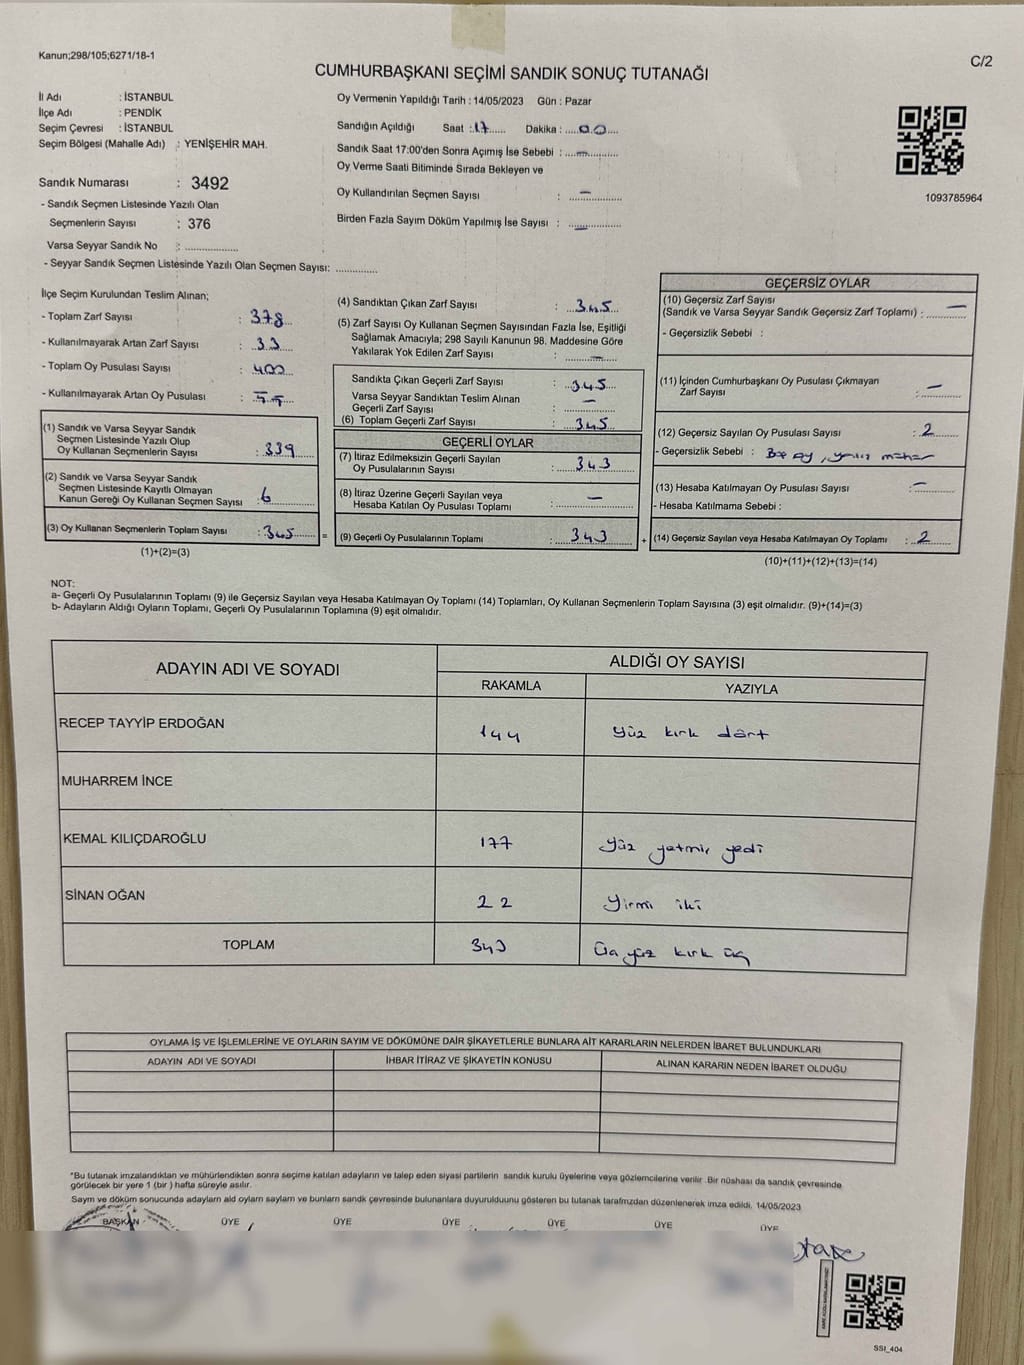 Kanun;298/105;6271/18-1
C/2
CUMHURBAŞKANI SEÇİMİ SANDIK SONUÇ TUTANAĞI
İl Adı : İSTANBUL
İlçe Adı : PENDİK
Seçim Çevresi : İSTANBUL
Seçim Bölgesi (Mahalle Adı) : YENİŞEHİR MAH.
Sandık Numarası : 3492
- Sandık Seçmen Listesinde Yazılı Olan
Seçmenlerin Sayısı : 376
Varsa Seyyar Sandık No : ................
- Seyyar Sandık Seçmen Listesinde Yazılı Olan Seçmen Sayısı: .............
Oy Vermenin Yapıldığı Tarih : 14/05/2023 Gün : Pazar
Sandığın Açıldığı Saat : 17 Dakika : 00
Sandık Saat 17:00'den Sonra Açımış İse Sebebi : —
Oy Verme Saati Bitiminde Sırada Bekleyen ve
Oy Kullandırılan Seçmen Sayısı : —
Birden Fazla Sayım Döküm Yapılmış İse Sayısı : —
1093785964
İlçe Seçim Kurulundan Teslim Alınan;
- Toplam Zarf Sayısı : 378
- Kullanılmayarak Artan Zarf Sayısı : 33
- Toplam Oy Pusulası Sayısı : 400
- Kullanılmayarak Artan Oy Pusulası : 55
(1) Sandık ve Varsa Seyyar Sandık
Seçmen Listesinde Yazılı Olup
Oy Kullanan Seçmenlerin Sayısı : 339
(2) Sandık ve Varsa Seyyar Sandık
Seçmen Listesinde Kayıtlı Olmayan
Kanun Gereği Oy Kullanan Seçmen Sayısı : 6
(3) Oy Kullanan Seçmenlerin Toplam Sayısı : 345 =
(1)+(2)=(3)
(4) Sandıktan Çıkan Zarf Sayısı : 345
(5) Zarf Sayısı Oy Kullanan Seçmen Sayısından Fazla İse, Eşitliği
Sağlamak Amacıyla; 298 Sayılı Kanunun 98. Maddesine Göre
Yakılarak Yok Edilen Zarf Sayısı : —
Sandıkta Çıkan Geçerli Zarf Sayısı : 345
Varsa Seyyar Sandıktan Teslim Alınan
Geçerli Zarf Sayısı : —
(6) Toplam Geçerli Zarf Sayısı : 345
GEÇERLİ OYLAR
(7) İtiraz Edilmeksizin Geçerli Sayılan
Oy Pusulalarının Sayısı : 343
(8) İtiraz Üzerine Geçerli Sayılan veya
Hesaba Katılan Oy Pusulası Toplamı : —
(9) Geçerli Oy Pusulalarının Toplamı : 343 +
GEÇERSİZ OYLAR
(10) Geçersiz Zarf Sayısı
(Sandık ve Varsa Seyyar Sandık Geçersiz Zarf Toplamı) : —
- Geçersizlik Sebebi :
(11) İçinden Cumhurbaşkanı Oy Pusulası Çıkmayan
Zarf Sayısı : —
(12) Geçersiz Sayılan Oy Pusulası Sayısı : 2
- Geçersizlik Sebebi : Boş oy,
(13) Hesaba Katılmayan Oy Pusulası Sayısı : —
- Hesaba Katılmama Sebebi :
(14) Geçersiz Sayılan veya Hesaba Katılmayan Oy Toplamı : 2
(10)+(11)+(12)+(13)=(14)
NOT:
a- Geçerli Oy Pusulalarının Toplamı (9) ile Geçersiz Sayılan veya Hesaba Katılmayan Oy Toplamı (14) Toplamları, Oy Kullanan Seçmenlerin Toplam Sayısına (3) eşit olmalıdır. (9)+(14)=(3)
b- Adayların Aldığı Oyların Toplamı, Geçerli Oy Pusulalarının Toplamına (9) eşit olmalıdır.
ADAYIN ADI VE SOYADI ALDIĞI OY SAYISI
RAKAMLA YAZIYLA
RECEP TAYYİP ERDOĞAN 144 yüz kırk dört
MUHARREM İNCE
KEMAL KILIÇDAROĞLU 177 yüz yetmiş yedi
SİNAN OĞAN 22 Yirmi iki
TOPLAM 343 Üç yüz kırk üç
OYLAMA İŞ VE İŞLEMLERİNE VE OYLARIN SAYIM VE DÖKÜMÜNE DAİR ŞİKAYETLERLE BUNLARA AİT KARARLARIN NELERDEN İBARET BULUNDUKLARI
ADAYIN ADI VE SOYADI İHBAR İTİRAZ VE ŞİKAYETİN KONUSU ALINAN KARARIN NEDEN İBARET OLDUĞU
*Bu tutanak imzalandıktan ve mühürlendikten sonra seçime katılan adayların ve talep eden siyasi partilerin sandık kurulu üyelerine veya gözlemcilerine verilir .Bir nüshası da sandık çevresinde
görülecek bir yere 1 (bir ) hafta süreyle asılır.
Sayım ve döküm sonucunda adayların ald oyların sayları ve bunların sandık çevresinde bulunanlara duyurulduunu gösteren bu tutanak tarafmzdan düzenlenerek imza edildi. 14/05/2023
BAŞKAN ÜYE ÜYE ÜYE ÜYE ÜYE ÜYE
SSI_404